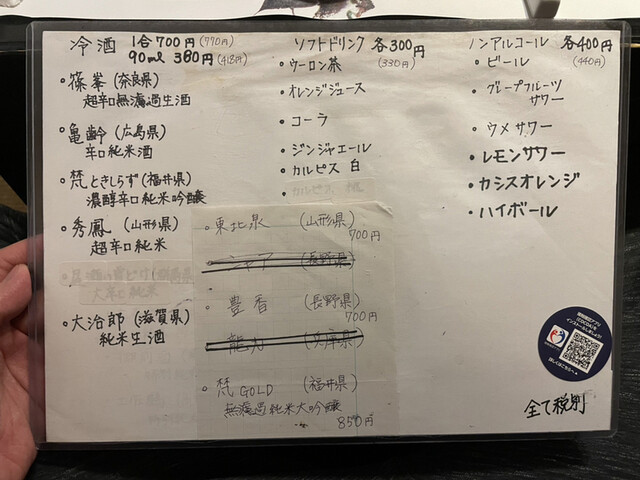 冷酒 1合700円(770円)
90ml 380円(418円)
・篠峯(奈良県)
超辛口無濾過生酒
・亀齢(広島県)
辛口純米酒
・梵ときしらず(福井県)
濃醇辛口純米吟醸
・秀鳳(山形県)
超辛口純米
・大治郎(滋賀県)
純米生酒
・東北泉 (山形県)
700円
(長野県)
・豊香 (長野県)
700円
(兵庫県)
・梵GOLD (福井県)
無濾過純米大吟醸
850円
ソフトドリンク 各300円
(330円)
・ウーロン茶
・オレンジジュース
・コーラ
・ジンジャエール
・カルピス 白
・カルピス
ノンアルコール 各400円
(440円)
・ビール
・グレープフルーツ
サワー
・ウメサワー
・レモンサワー
・カシスオレンジ
・ハイボール
全て税別